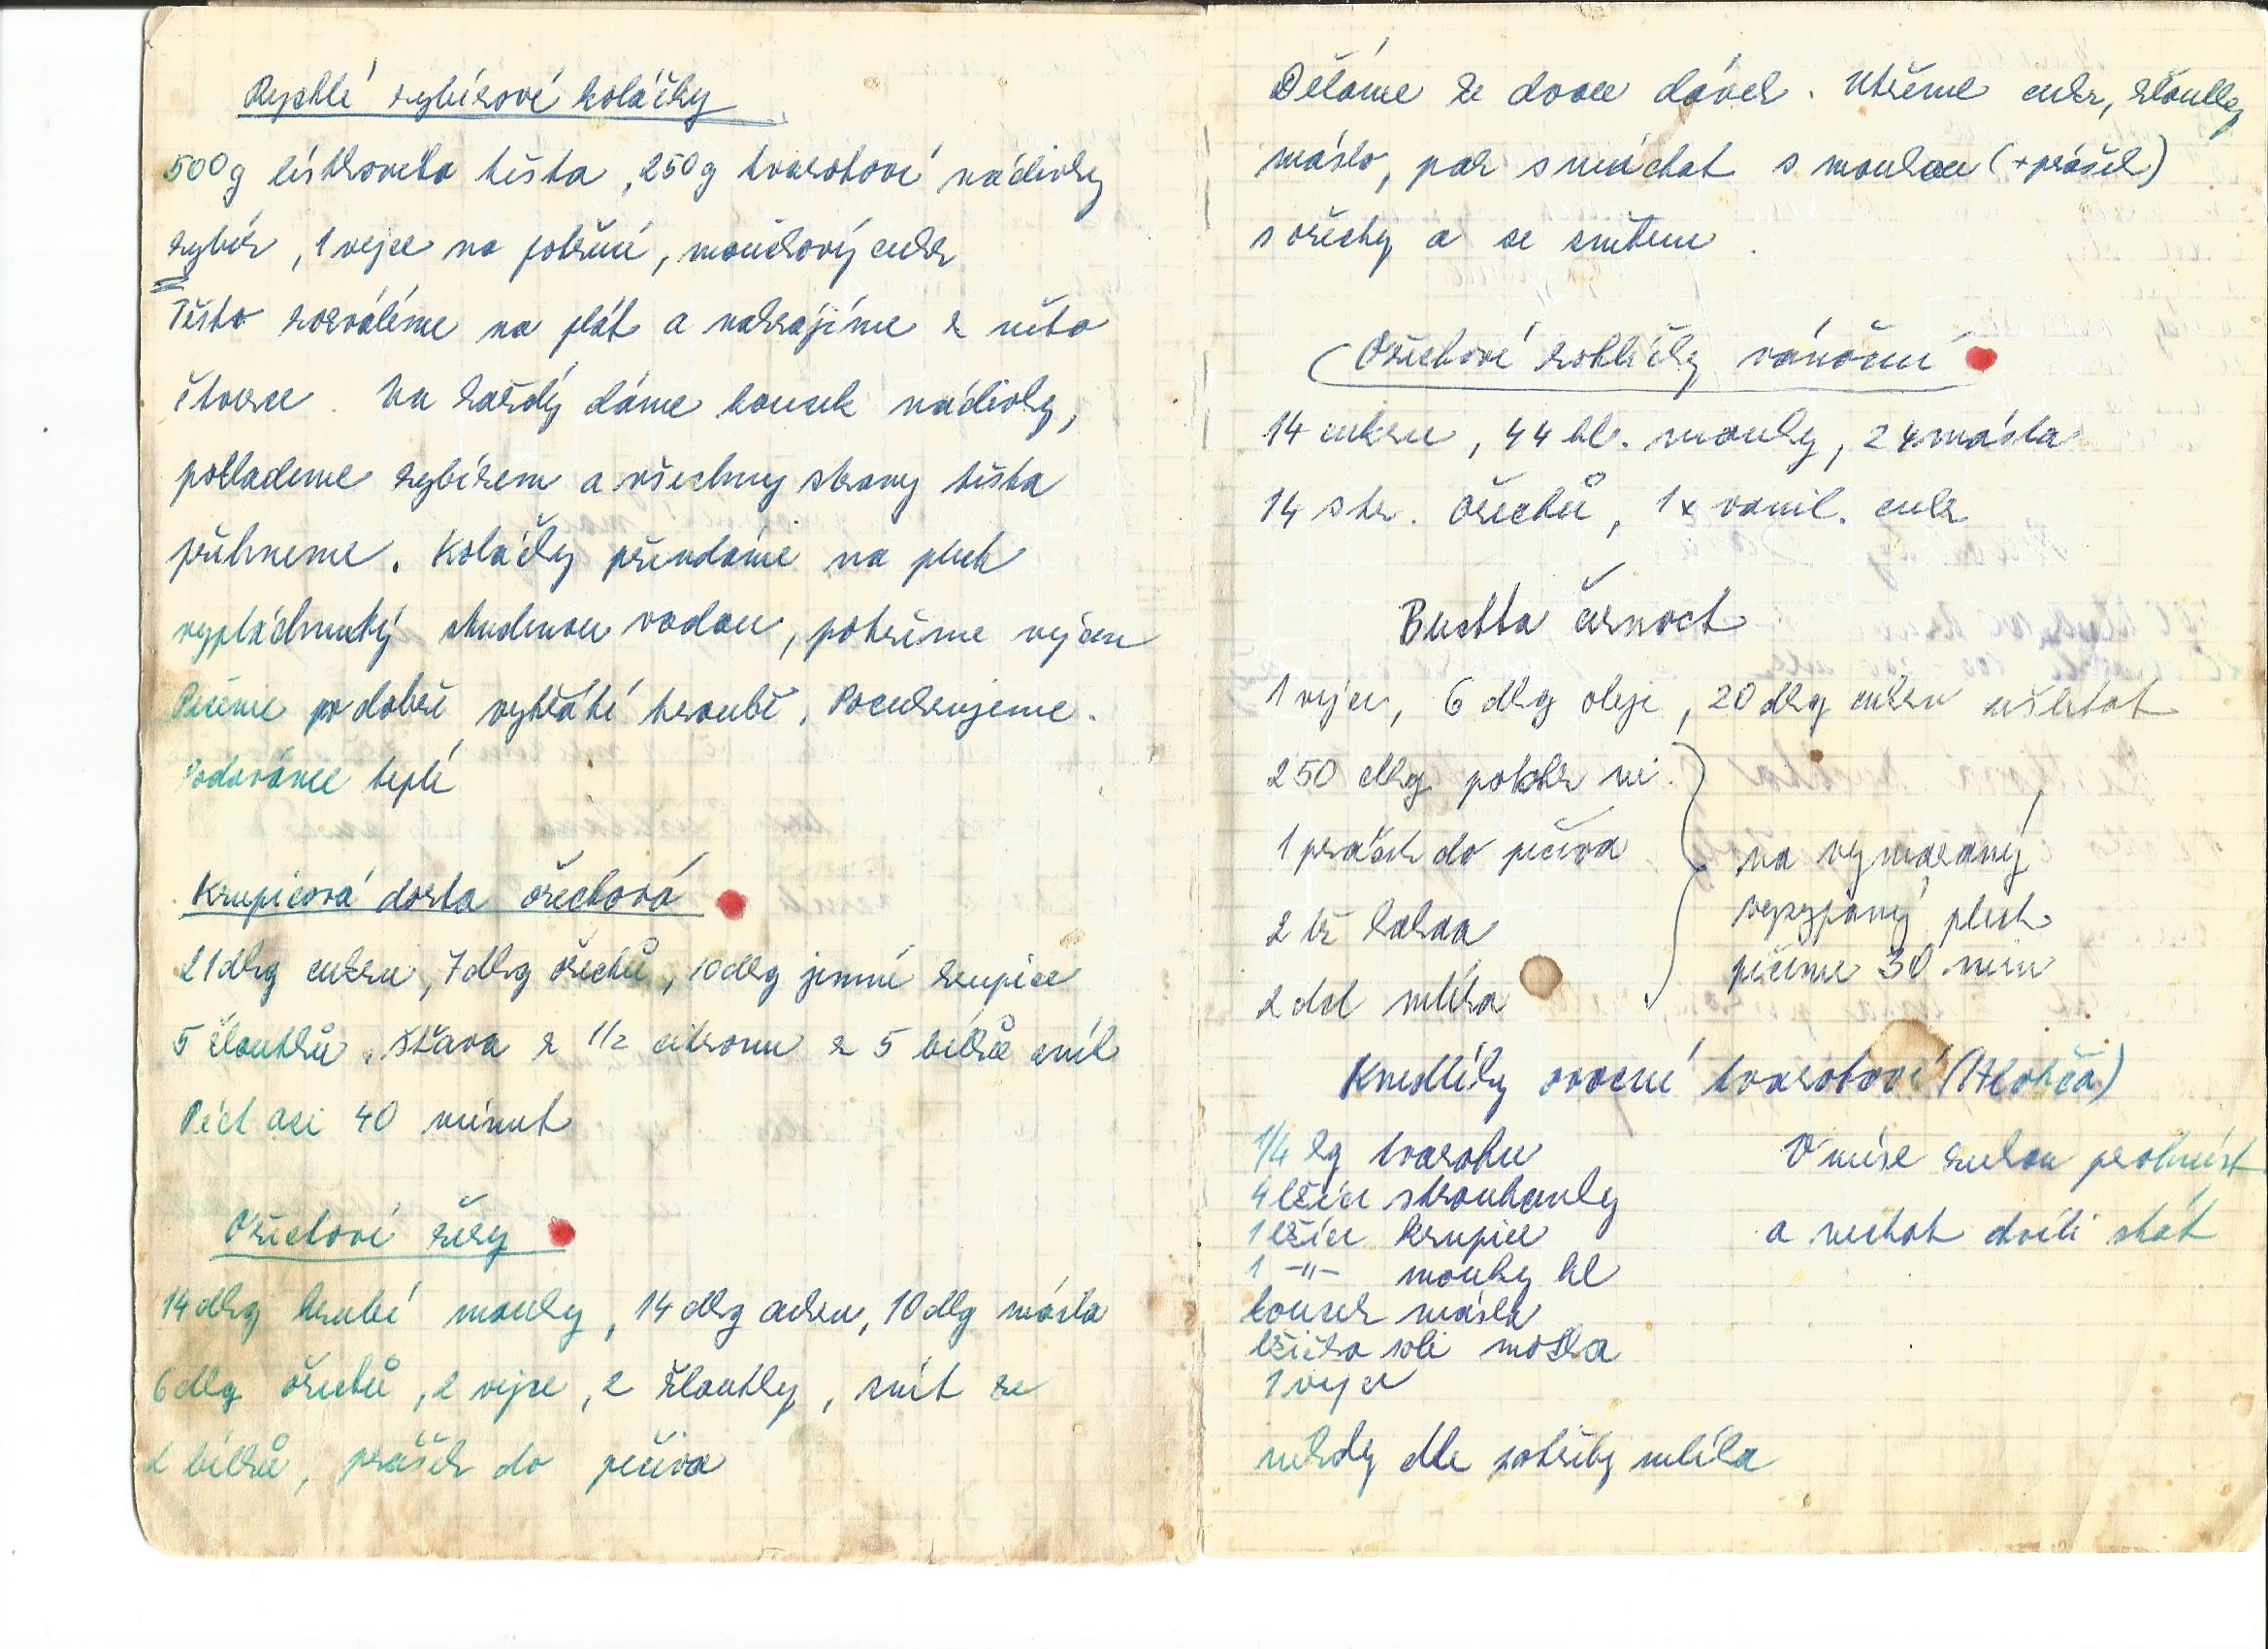 Rychlé rybízové koláčky
500g lístkového těsta, 250g tvarohové nádivky
rybíz, 1 vejce na potření, moučkový cukr
Těsto rozválíme na plát a nakrájíme z něho
čtverce. Na každý dáme kousek nádivky,
poklademe rybízem a všechny strany těsta
přehneme. Koláčky přendáme na plech
vypláchnutý studenou vodou, potřeme vejcem
Pečeme v dobře vyhřáté troubě. Pocukrujeme.
Podáváme teplé
Krupicová dorta ořechová
21dkg cukru, 7dkg ořechů, 10dkg jemné krupice
5 žloutků, šťáva z 1/2 citronu z 5 bílků sníh
Péct asi 40 minut
Ořechové řezy
14dkg hrubé mouky, 14dkg cukru, 10dkg másla
6dkg ořechů, 2 vejce, 2 žloutky, sníh ze
2 bílků, prášek do pečiva
Děláme ze dvou dávek. Utřeme cukr, žloutky
máslo, pak smíchat s moukou (+prášek)
s ořechy a se sněhem.
Ořechové rohlíčky vánoční
14 cukru, 44 hl. mouky, 24 másla
14 str. ořechů, 1x vanil. cukr
Buchta černoch
1 vejce, 6 dkg oleje, 20 dkg cukru ušlehat
250 dkg polohr m.
1 prášek do pečiva
2 lž kakaa
2 dcl mléka
na vymazaný
vysypaný plech
pečeme 30 min
Knedlíky ovocné tvarohové
1/4 kg tvarohu
4 lžíce strouhanky
1 lžíce krupice
1 -"- mouky hl
kousek másla
lžička soli
1 vejce
někdy dle potřeby mléka
V míse rukou prohníst
a nechat chvíli stát